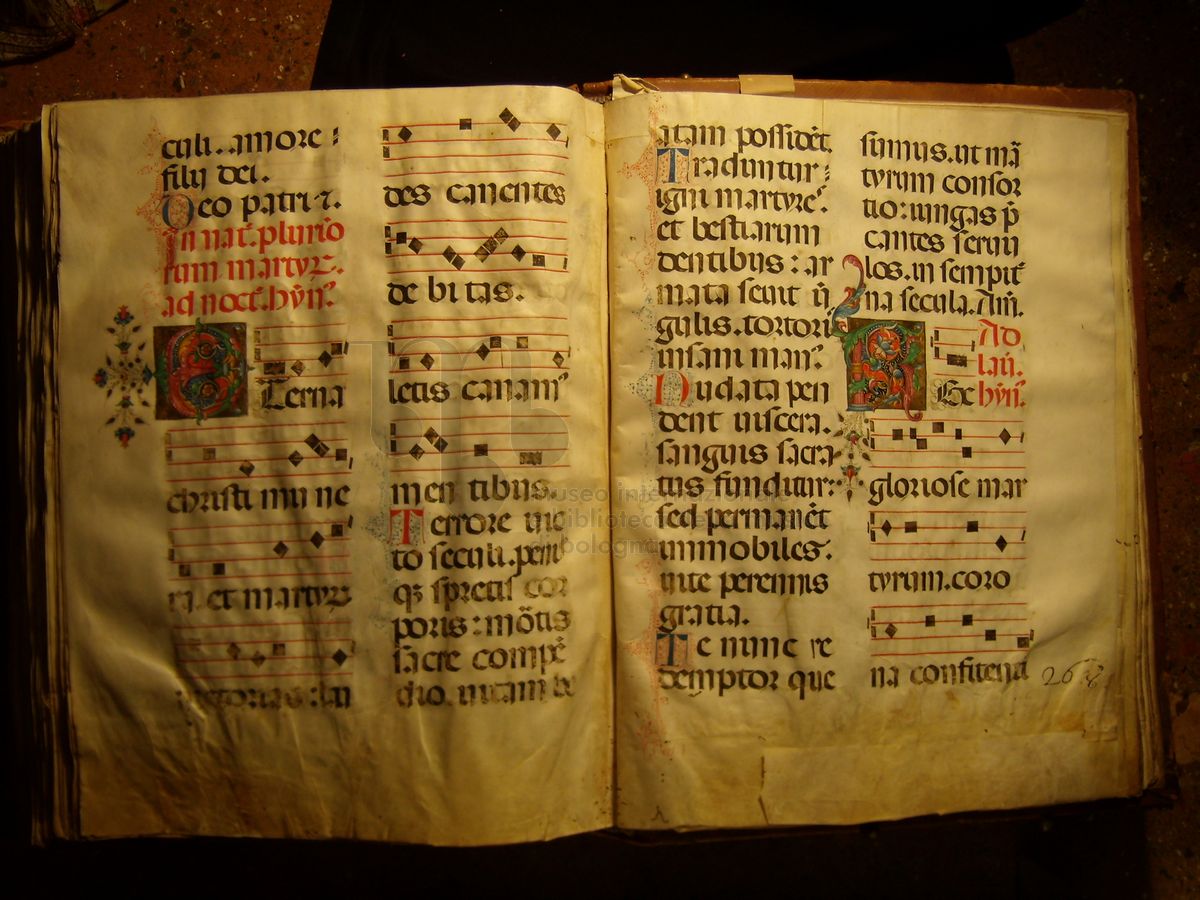 culi. amore :
filii dei.
Deo patri ⁊.
In nat̄. plurīo
rum martyꝝ.
ad noct̄. hyn̄.
Eterna
christi mu ne
ra et martyꝝ
victorias : lau
des canentes
debitas.
letis canam᷒
men tibus.
Terrore vic
to seculi. peni᷒
qꝫ spretis cor
poris : mōtis
sacre compē
dio. vitam be
atam possidēt.
Traduntur :
igni martyreˢ.
et bestiarum
dentibus : ar
mata sevit ū
gulis. tortori᷒
insani man᷒.
Nudata pen
dent viscera.
sanguis sacra
tus funditur :
sed permanēt
immobiles.
vite perennis
gratia.
Te nunc re
demptor que
sumus. ut mā
tyrum consor
tio : iungas p̄
cantes servu
los. in sempit̄
na secula. Am̄.
Ad
lau̅.
Rex hyn̄.
gloriose mar
tyrum. coro
na confitenti
268
museo internazionale
biblioteca
bologna